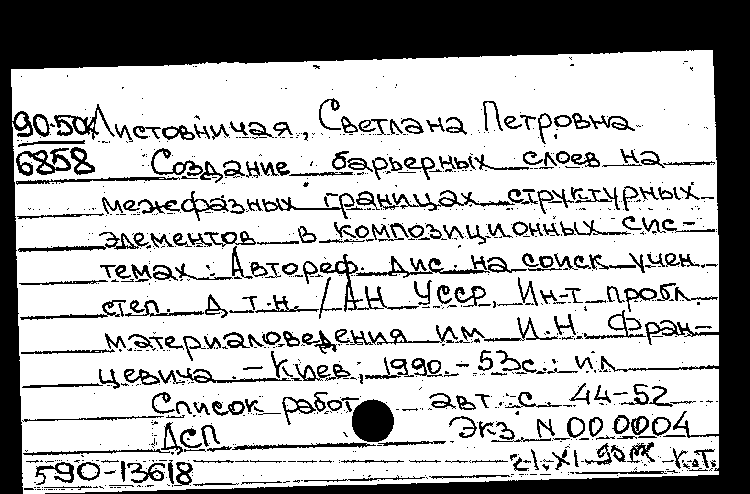 90-50К Листовничая, Светлана Петровна
6858 Создание барьерных слоев на
межфазных границах структурных
элементов в композиционных сис-
темах : Автореф. дис. на соиск учен.
степ. д. т.н. / АН УССР, Ин-т пробл.
материаловедения им И.Н. Фран-
цевича. - Киев, 1990. - 53с. : ил
Список работ авт. : с. 44-52
ДСП Экз. N 000004
590-13618 21.XI.90 К.Т.